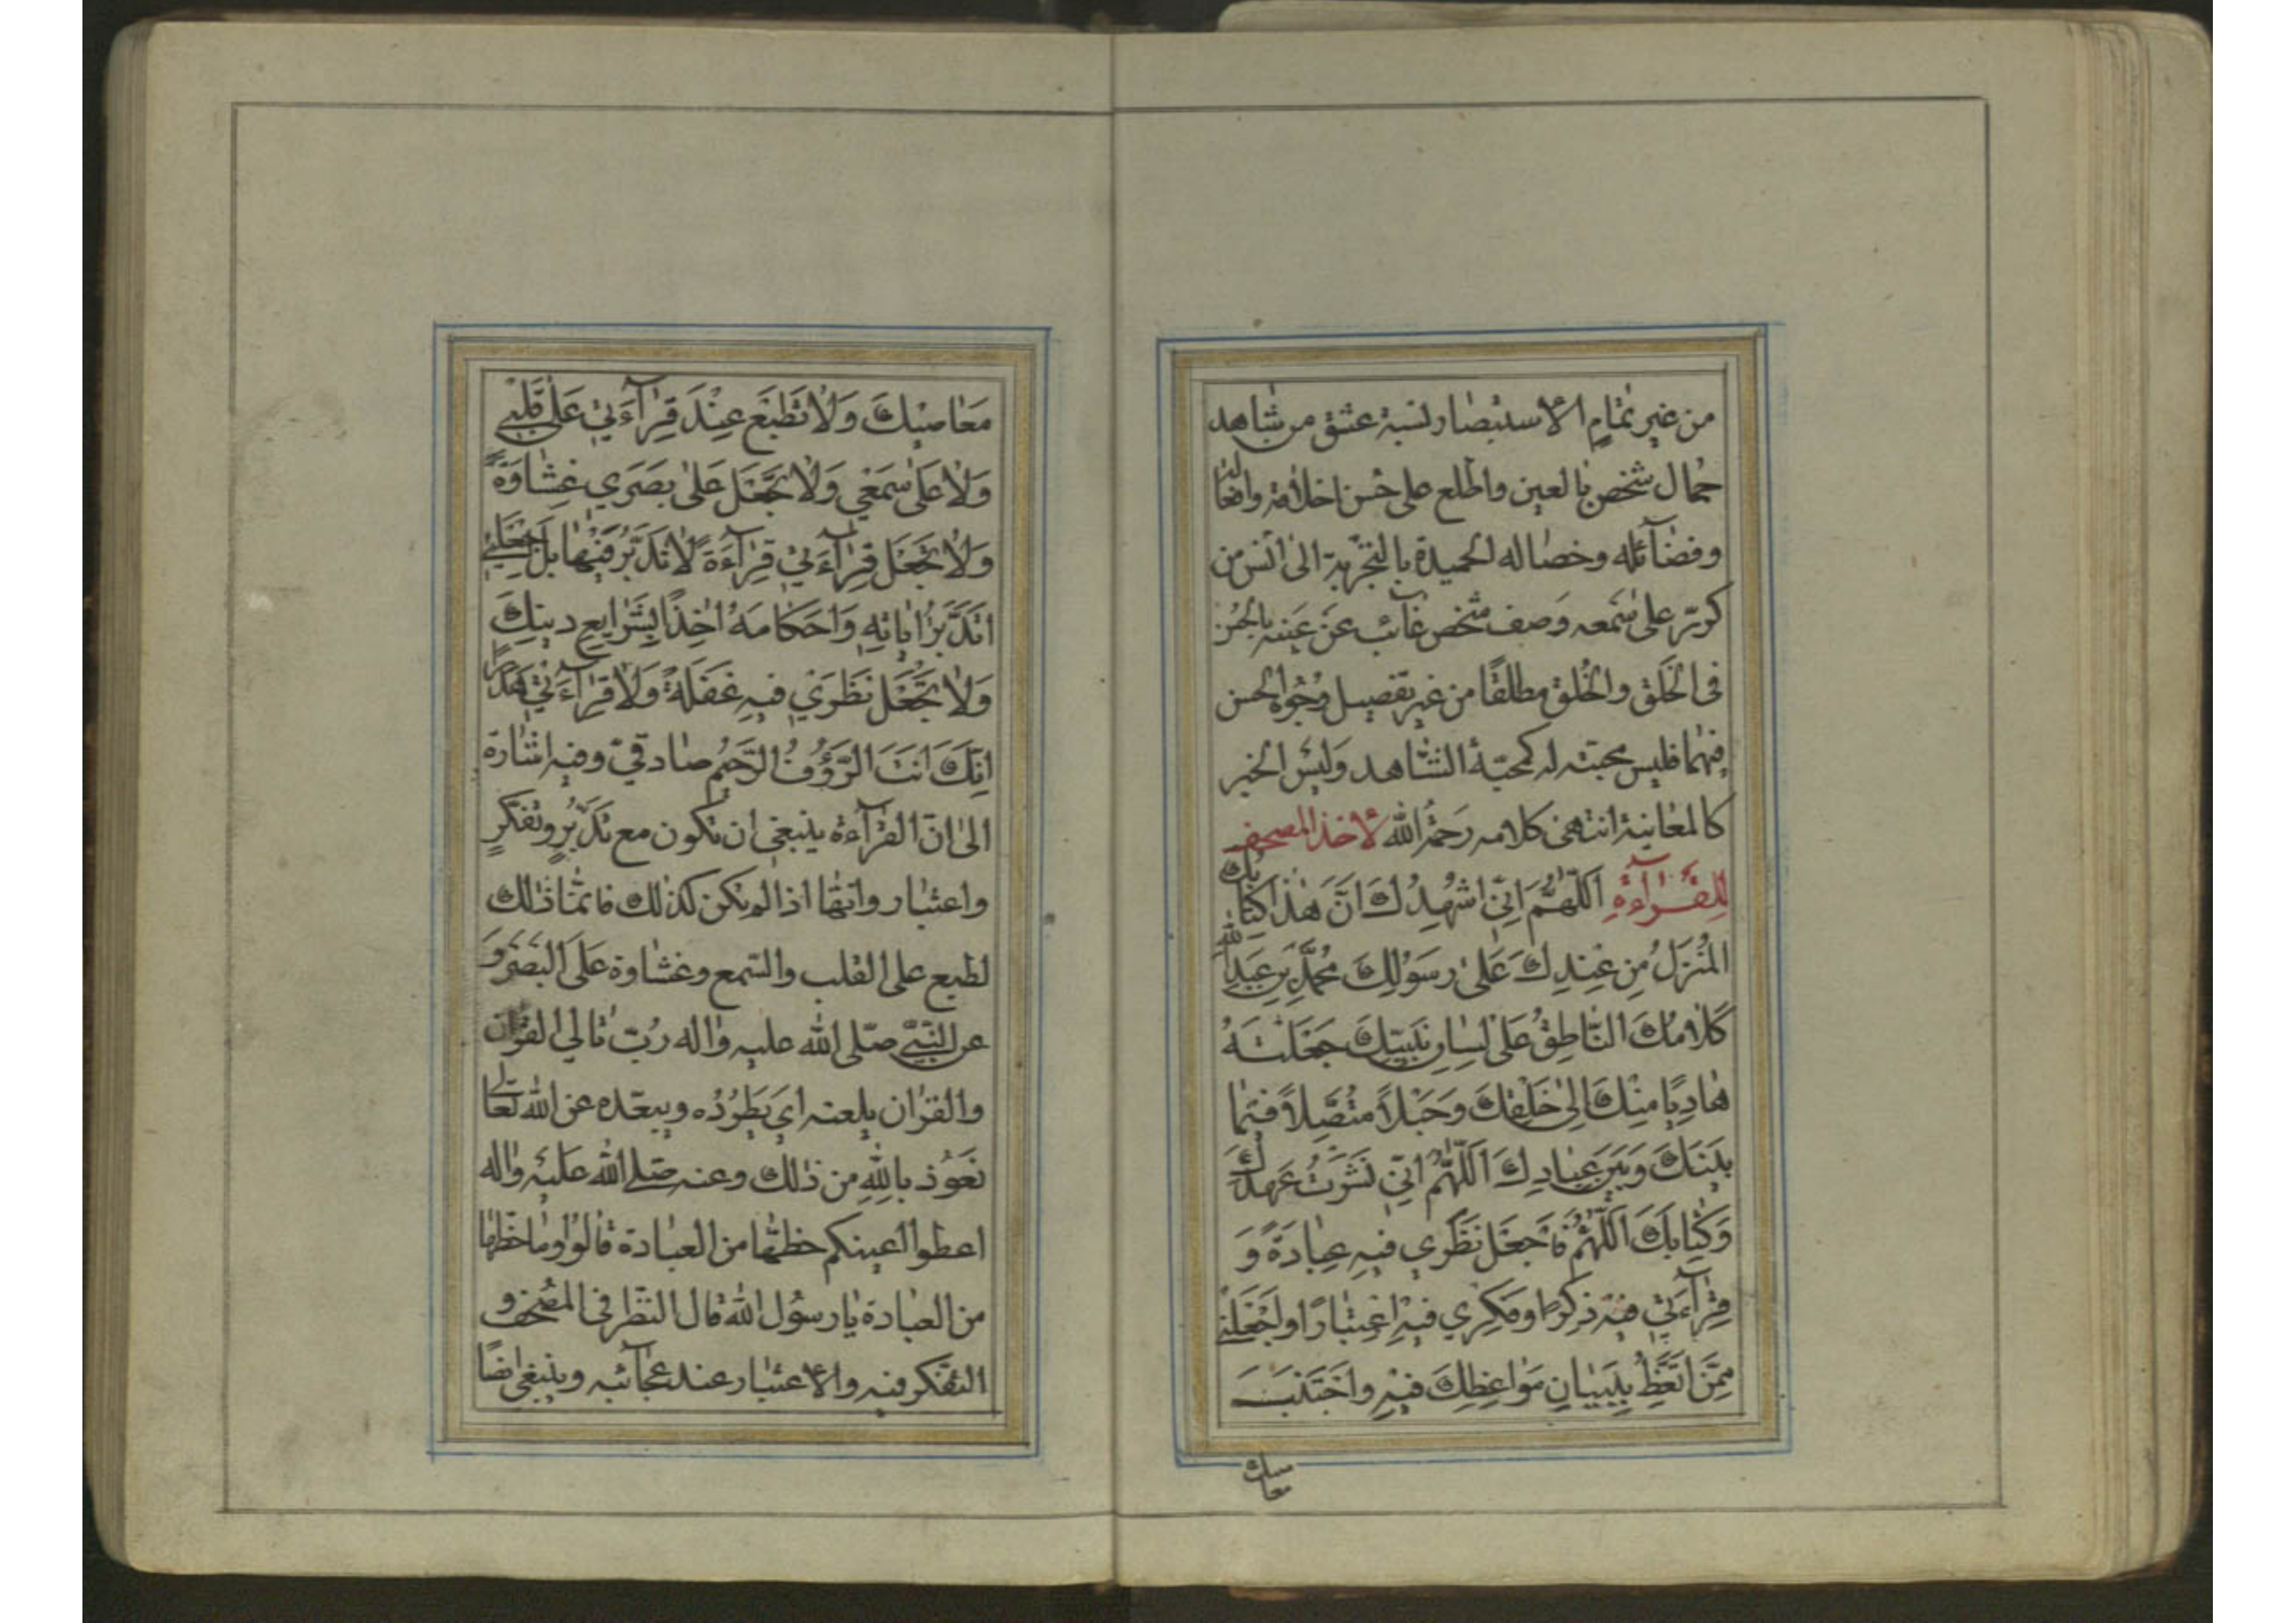 من غير تمام الاستبصار نسبة عشق من شاهد
جمال شخص بالعين واطلع على حسن اخلاقه وافعاله
وفضآئله وخصاله الحميدة بالتجربة الى انس من
كرّر على سمعه وصف شخص غائب عن عينه بالحسن
فى الخَلق والخُلق مطلقًا من غير تفصيل وجُوه الحسن
فيهما فليس محبته له كمحبّة المشاهد وَليس الخبر
كالمعاينة انتهى كلامه رَحمهُ الله لاخذ المصحف
لِلقرآءةِ اَللّهُمَّ اِنّي اَشْهَدُ لَكَ اَنَّ هٰذَا كِتابُكَ
المُنْزَلُ مِنْ عِنْدِكَ عَلىٰ رَسُوْلِكَ مُحَمَّدِ بْنِ عَبْدِ اللهِ
كَلامُكَ النّاطِقُ عَلىٰ لِسانِ نَبِيّكَ جَعَلْتَهُ
هادِيًا مِنْكَ اِلىٰ خَلْقِكَ وَحَبْلاً مُتَّصِلاً فيما
بَيْنَكَ وَبَيْنَ عِبادِكَ اَللّهُمَّ اِنّي نَشَرْتُ عَهْدَكَ
وَكِتابَكَ اَللّهُمَّ فَاجْعَلْ نَظَري فيهِ عِبادَةً وَ
قِرآءَتي فيهِ ذِكْرًا وفِكْري فيهِ اِعْتِبارًا وَاجْعَلْني
مِمَّنْ اتَّعَظَ بِبَيانِ مَواعِظِكَ فيهِ وَاجْتَنَبَ
معاصيك
مَعاصيكَ وَلا تَطْبَعْ عِنْدَ قِرآءَتي عَلىٰ قَلْبي
وَلا عَلىٰ سَمْعي وَلا تَجْعَلْ عَلىٰ بَصَري غِشاوَةً
وَلا تَجْعَلْ قِرآءَتي قِرآءَةً لا تَدَبُّرَ فيها بَلِ اجْعَلْني
اَتَدَبَّرُ اٰياتِهِ وَاَحْكامَهُ اٰخِذًا بِشَرايِعِ دينِكَ
وَلا تَجْعَلْ نَظَري فيهِ غَفْلَةً وَلا قِرآءَتي هَذَرًا
اِنَّكَ اَنْتَ الرَّؤُفُ الرَّحيمُ صادقيّ وفيه اشارة
الى انّ القرآءة ينبغي ان تكون مع تَدَبُّرٍ وتفكّرٍ
واعتبار وانّها اذا لم يكن كذلك فانّما ذلك
لطبع على القلب والسّمع وغشاوة عَلَى البَصَر وَ
عن النّبيّ صلّى الله عليه واله رُبّ تالي القرْان
والقرْان يلعنه اي يَطرُدُه ويبعّده عن الله تعالى
نَعوُذ بالله من ذلك وعنه صلّى الله عَليْه واله
اعطوا اعينكم حظّها من العبادة قالوُا وما حظّها
من العبادة يا رسوُل الله قال النّظر فى المصْحف و
التفكر فيه والاعتبار عند عجآئبه وينبغي ايضًا